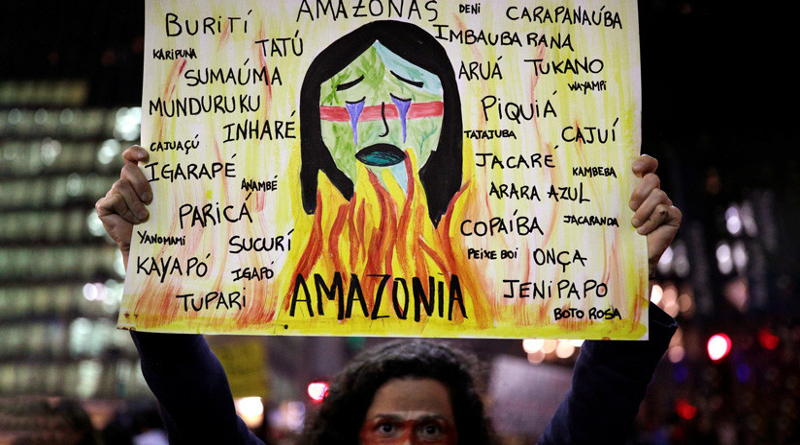 AMAZONAS
BURITÍ
DENI
CARAPANAÚBA
KARIPUNA
TATÚ
IMBAUBARANA
SUMAÚMA
ARUÁ
TUKANO
WAYAMPI
MUNDURUKU
PIQUIÁ
INHARÉ
TATAJUBA
CAJUÍ
CAJUAÇÚ
IGARAPÉ
JACARÉ
KAMBEBA
ANAMBÉ
ARARA AZUL
PARICÁ
COPAÍBA
JACARANDA
YANOMAMI
SUCURÍ
PEIXE BOI
ONÇA
KAYAPÓ
IGAPÓ
AMAZONIA
JENIPAPO
TUPARI
BOTO ROSA